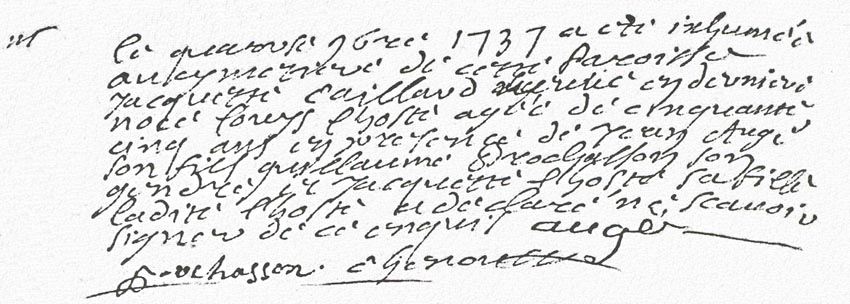 le quatorse 9bre 1737 a eté inhumée
au cymetiere de cette paroisse
Jacquette Caillaud en derniere
noce Louys Lhoste agée de cinquante
cinq ans en presence de Jean Augé
son fils guillaume Brochasson son
gendre et Jacquette Lhoste sa fille
ladite Lhoste a declaré ne scauoir
signer de ce enquis augé
Brochasson